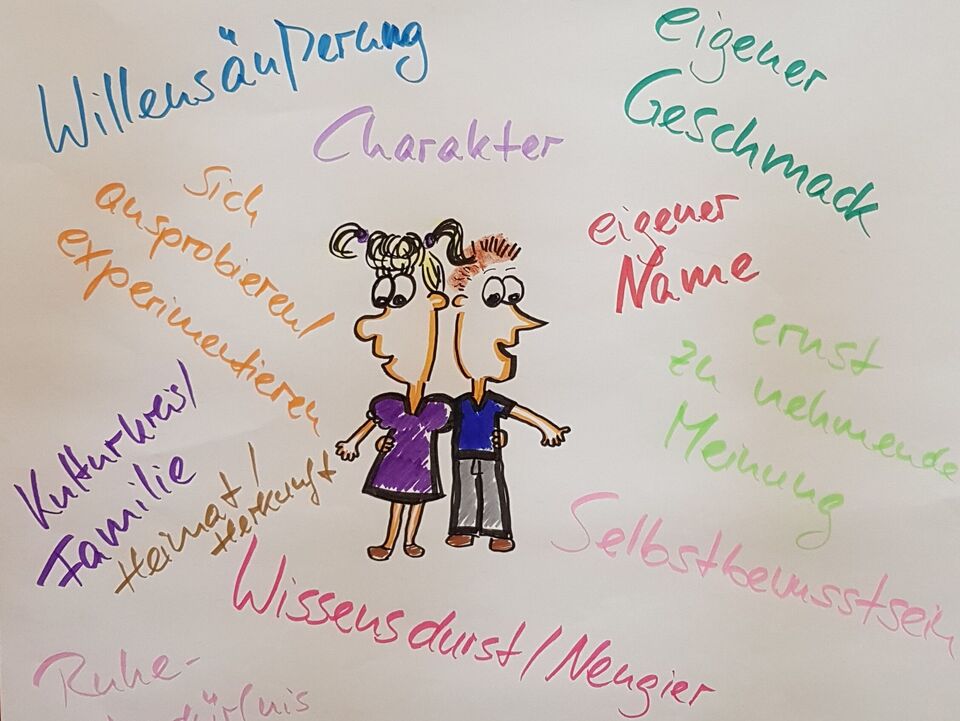 Willensäußerung
Charakter
eigener
Geschmack
sich
ausprobieren/
experimentieren
eigener
Name
ernst
zu nehmende
Meinung
Kulturkreis/
Familie
Heimat/
Herkunft
Selbstbewusstsein
Wissensdurst/Neugier
Ruhe-